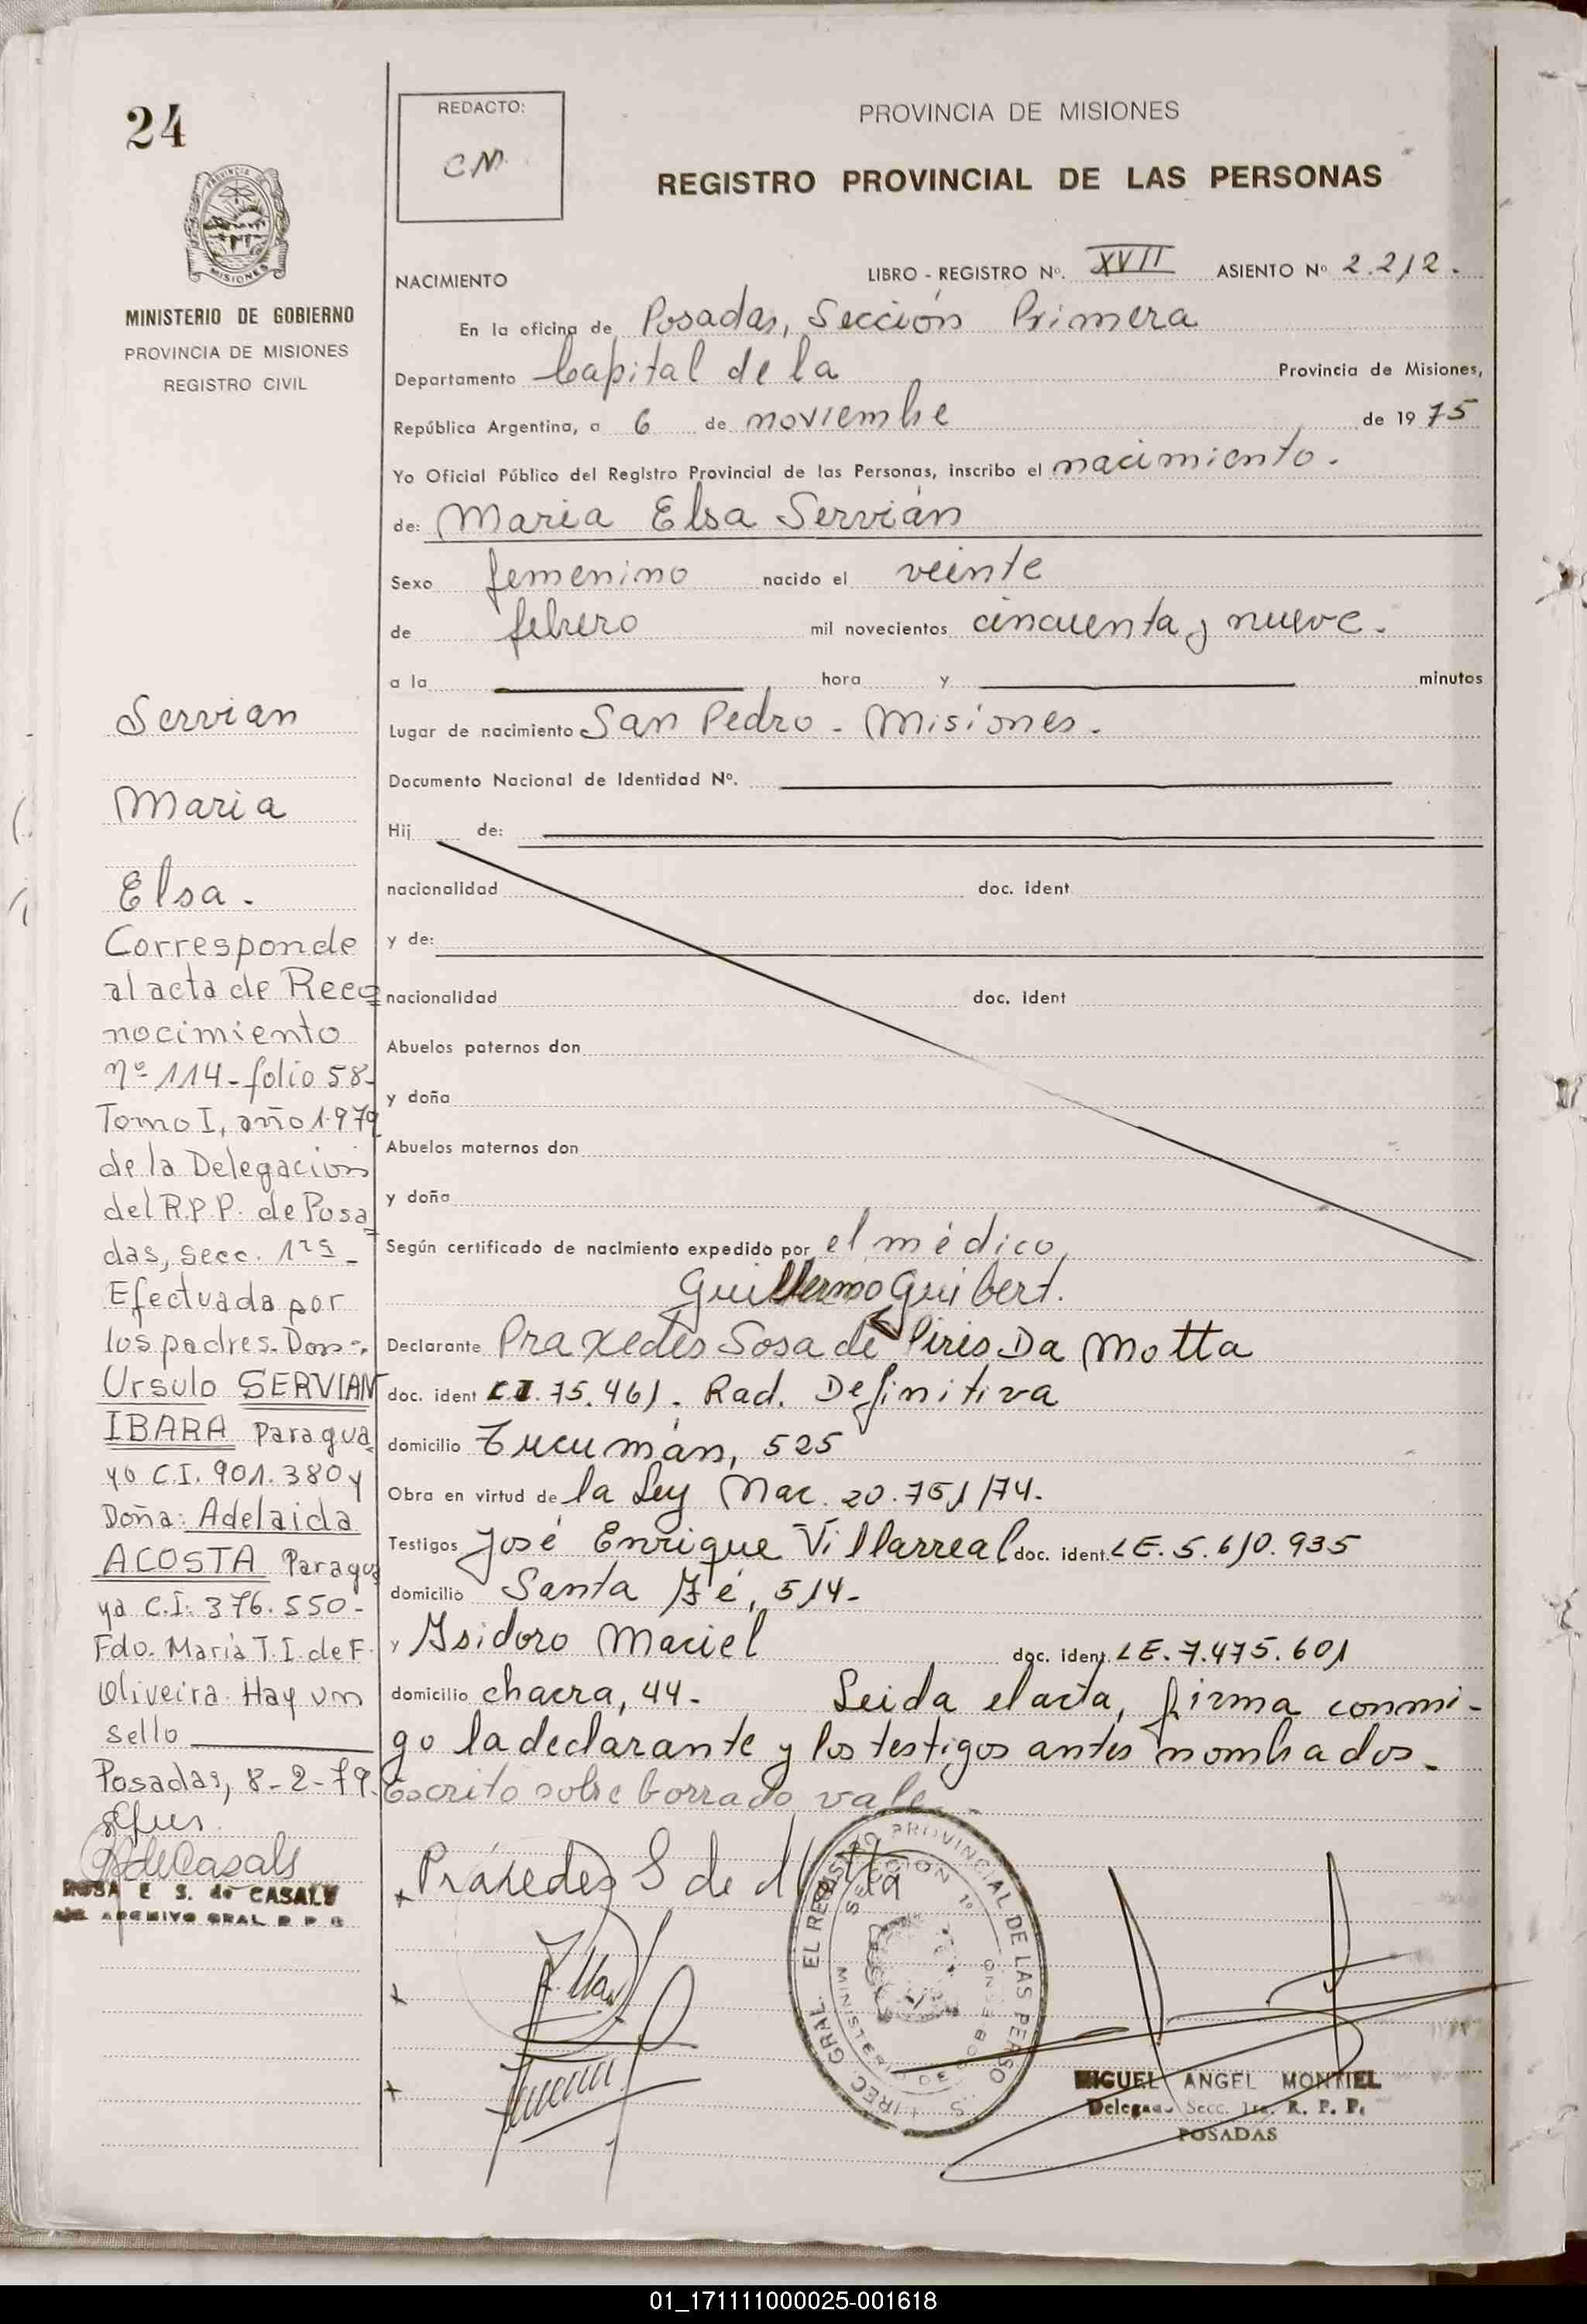 24
REDACTO:
CM.
PROVINCIA DE MISIONES
REGISTRO PROVINCIAL DE LAS PERSONAS
MISIONES
MINISTERIO DE GOBIERNO
PROVINCIA DE MISIONES
REGISTRO CIVIL
NACIMIENTO
LIBRO - REGISTRO Nº. XVII ASIENTO Nº 2.212.
En la oficina de Posadas, Sección Primera
Departamento Capital de la Provincia de Misiones,
República Argentina, a 6 de noviembre de 1975
Yo Oficial Público del Registro Provincial de las Personas, inscribo el nacimiento.
de: Maria Elsa Servián
Sexo femenino nacido el veinte
de febrero mil novecientos cincuenta y nueve.
a la hora y minutos
Lugar de nacimiento San Pedro - Misiones.
Documento Nacional de Identidad Nº.
Hij de:
nacionalidad doc. ident
y de:
nacionalidad doc. ident
Abuelos paternos don
y doña
Abuelos maternos don
y doña
Según certificado de nacimiento expedido por el médico,
Guillermo Guibert.
Declarante Praxedes Sosa de Piris Da Motta
doc. ident C.I. 75.461. Rad. Definitiva
domicilio Tucumán, 525
Obra en virtud de la Ley Nac. 20.751/74.
Testigos José Enrique Villarreal doc. ident. LE. 5.610.935
domicilio Santa Fé, 514-
y Isidoro Maciel doc. ident. LE. 7.475.601
domicilio chacra, 44- Leida el acta, firma conmi-
go la declarante y los testigos antes nombrados.
Escrito sobre borrado vale
Práxedes S de Motta
DIREC. GRAL. EL REGISTRO PROVINCIAL DE LAS PERSO
SECCION 1º
MINISTERIO DE GOB
MIGUEL ANGEL MONTIEL
Delegado Secc. 1ra. R. P. P.
POSADAS
Servian
Maria
Elsa.
Corresponde
al acta de Reco
nocimiento
Nº 114-folio 58-
Tomo I, año 1.979
de la Delegación
del R.P.P. de Posa
das, secc. 1ra-
Efectuada por
los padres. Don-:
Ursulo SERVIAN
IBARA Paragua
yo C.I. 901.380 y
Doña: Adelaida
ACOSTA Paragua
ya C.I: 376.550-
Fdo. María T. I. de F.
Oliveira. Hay un
sello
Posadas, 8-2-79.
ROSA E S. de CASALS
ARCHIVO GRAL R P P
01_171111000025-001618